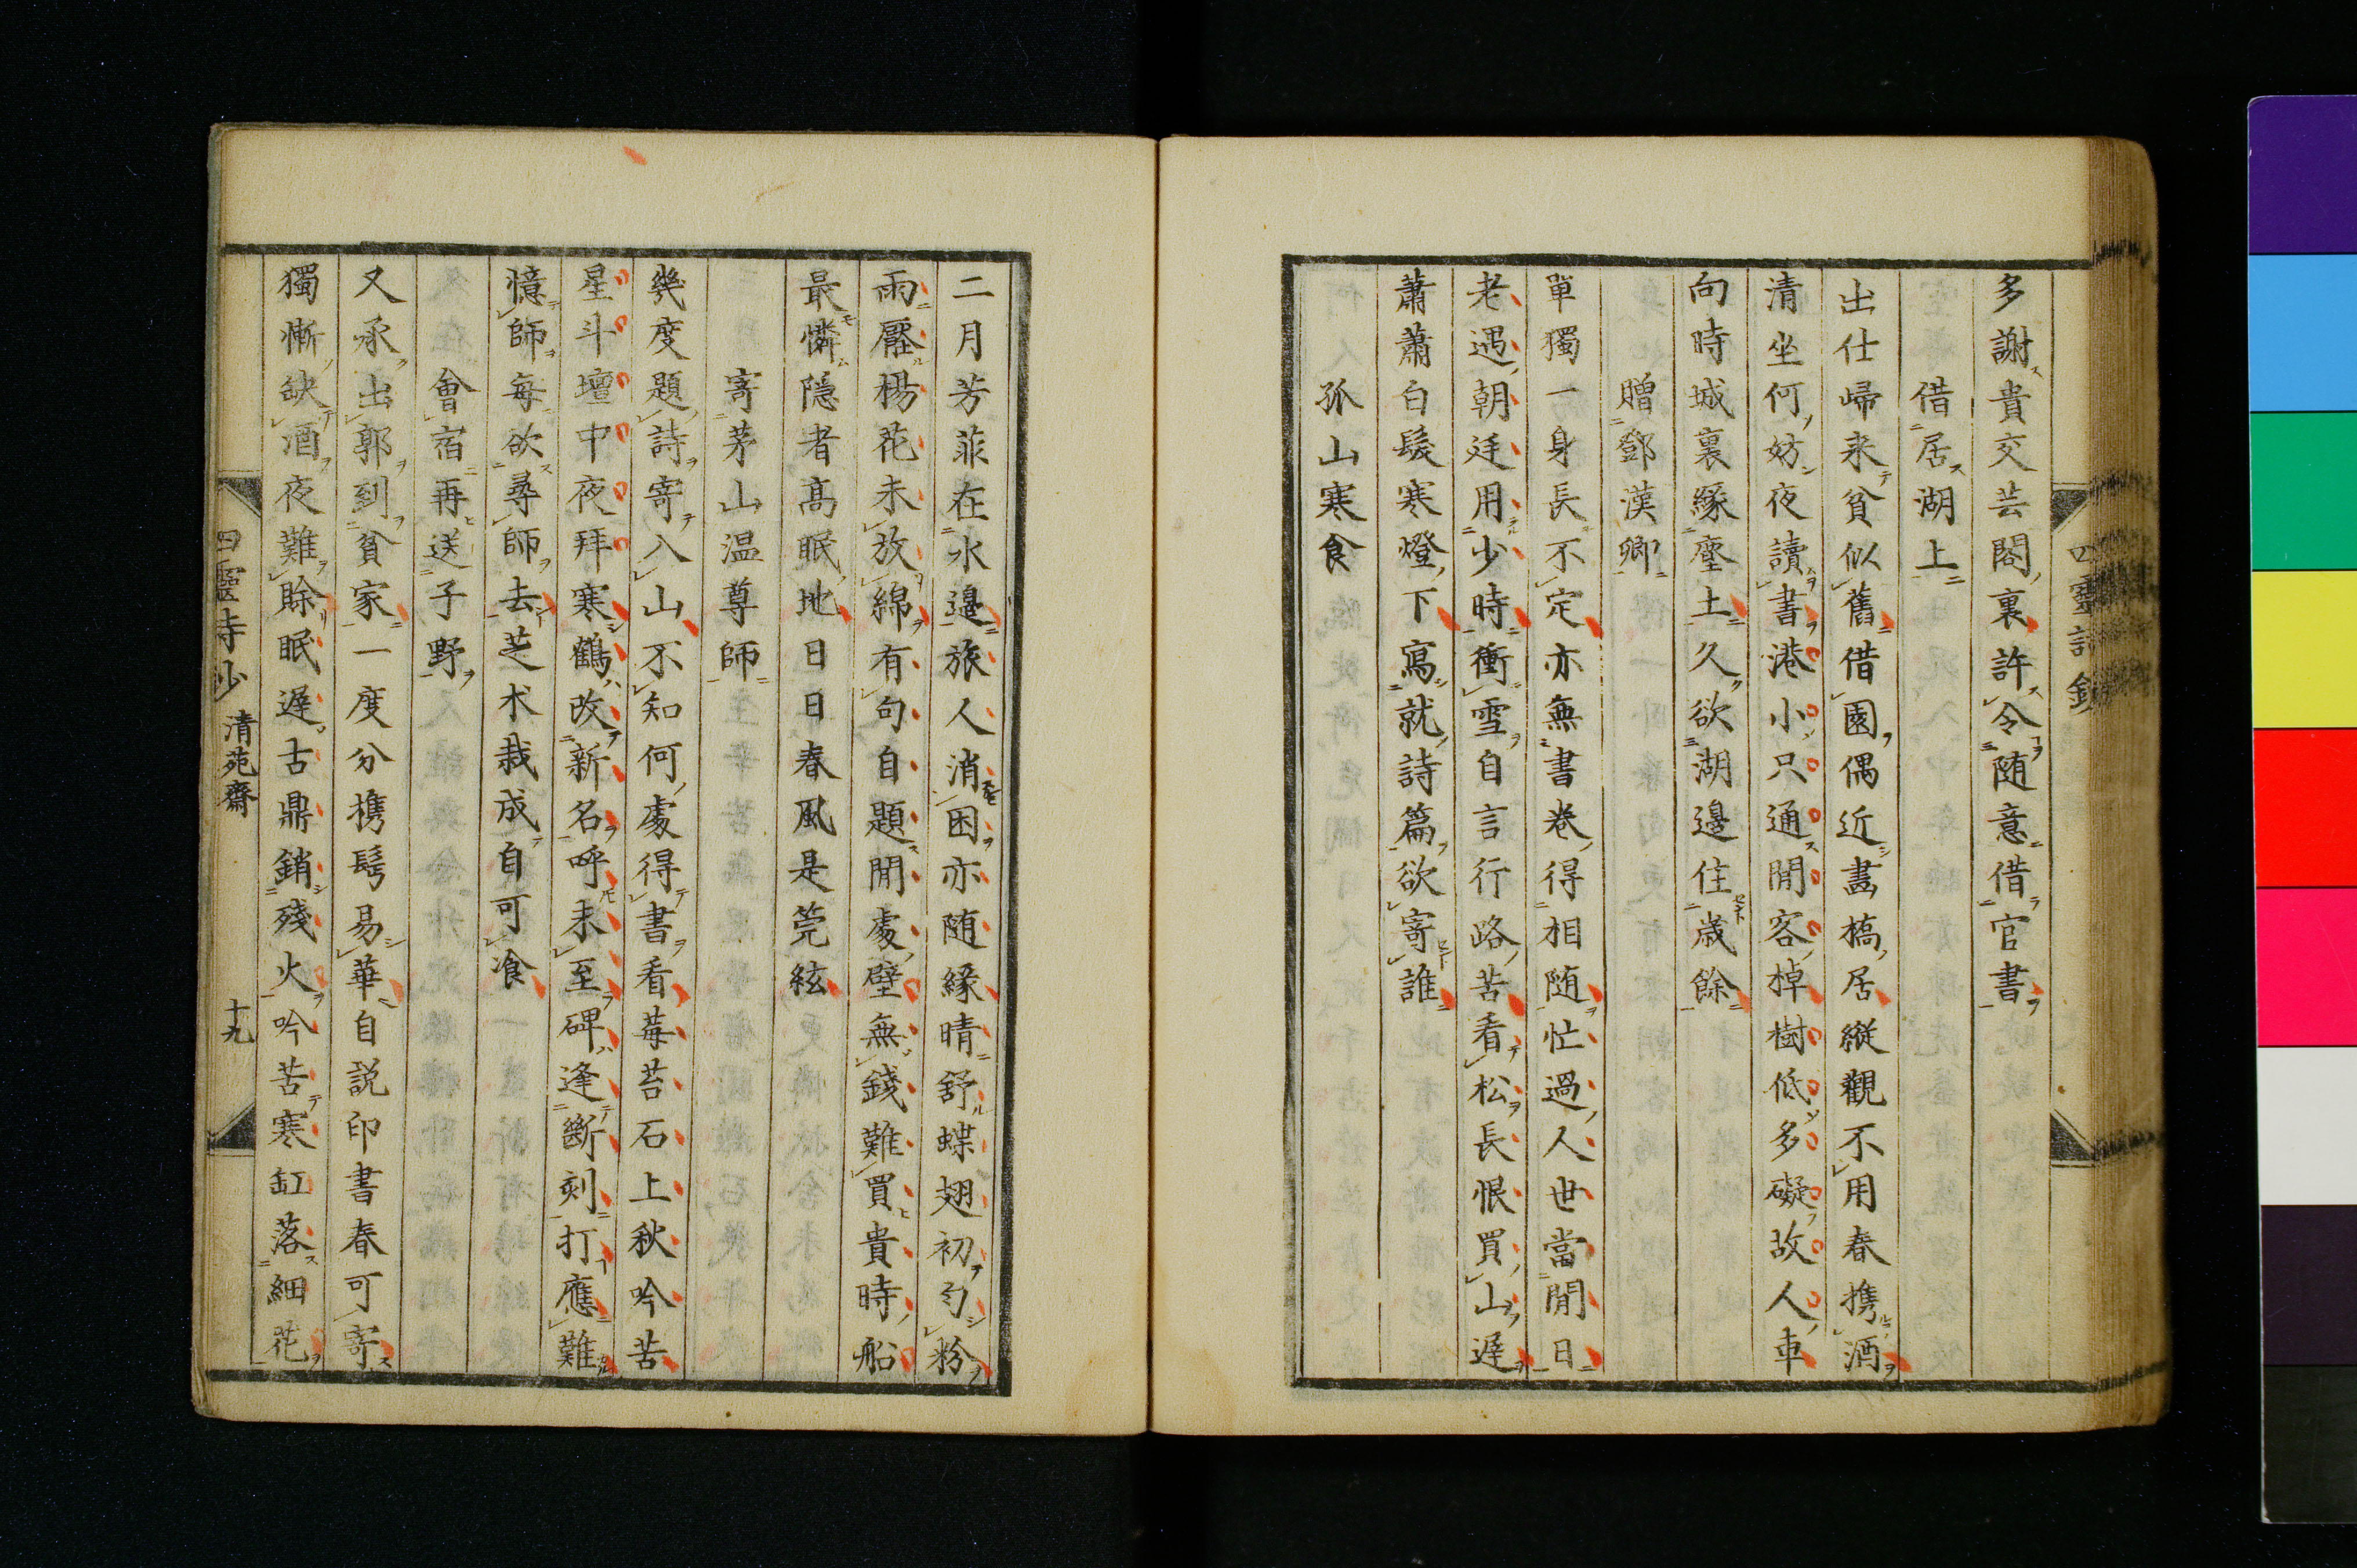 多謝貴交芸閣裏許令随意借官書
借居湖上
出仕歸来貧似舊借園偶近畫橋居縦觀不用春携酒
清坐何妨夜讀書港小只通閒客棹樹低多礙故人車
向時城裏縁塵土久欲湖邊住歳餘
贈鄧漢卿
單獨一身長不定亦無書卷得相随忙過人世當閒日
老遇朝廷用少時衝雪自言行路苦看松長恨買山遅
蕭蕭白髮寒燈下寫就詩篇欲寄誰
孤山寒食
二月芳菲在水邉旅人消困亦随縁晴舒蝶翅初匀粉
雨壓楊花未放綿有句自題閒處壁無錢難買貴時船
最憐隠者髙眠地日日春風是莞絃
寄茅山温尊師
幾度題詩寄入山不知何處得書看莓苔石上秋吟苦
星斗壇中夜拜寒鶴改新名呼未至碑逢斷刻打應難
憶師毎欲尋師去芝术栽成自可飡
會宿再送子野
又承出郭到貧家一度分携髩易華自説印書春可寄
獨慚缺酒夜難賒眠遅古鼎銷殘火吟苦寒缸落細花
四靈詩鈔 清苑齋 十九